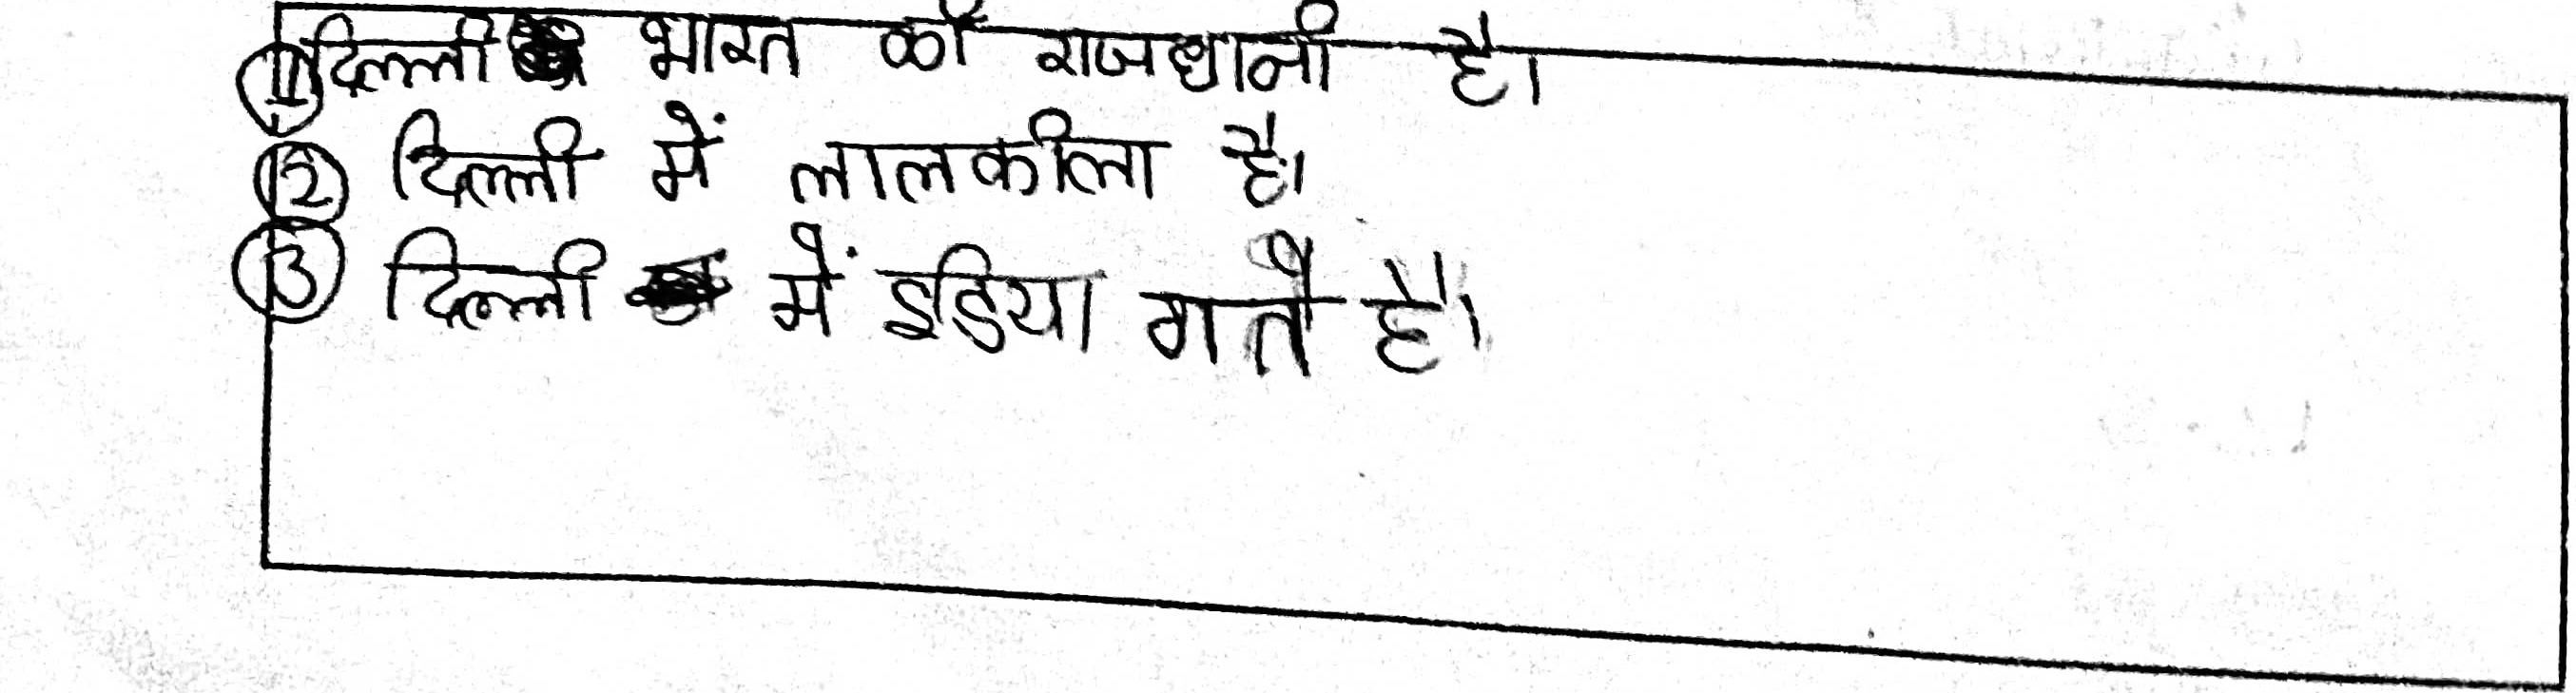 ① दिल्ली भारत की राजधानी है।
② दिल्ली में लालकीला है।
③ दिल्ली में इडिया गते है।